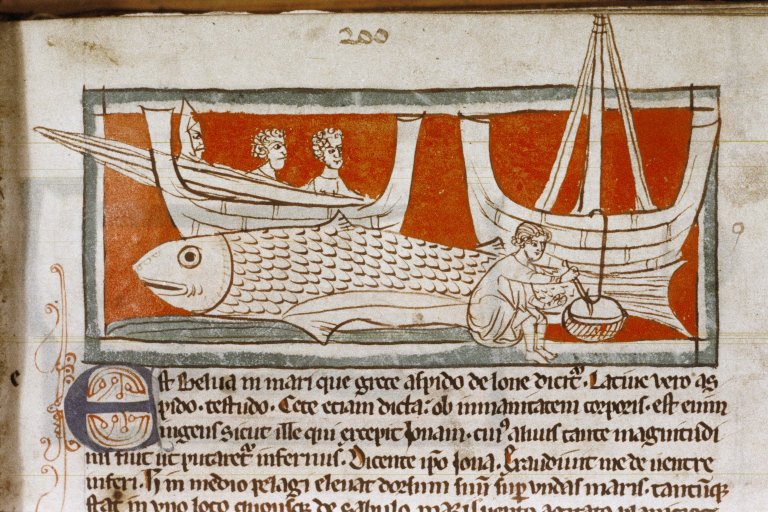 200
Est Belua in mari que grece aspido de lone dicitr̃. Latine vero as
pido. testudo. Cete eciam dicta: ob inmanitatem corporis. est enim
ingens sicut ille qui excepit Jonam. cuiꝰ aluus tante magnitudi
nis fuit ut putaretr̃ infernus. Dicente ip̃o Jona. Exaudiuit me de uentre
inferi. H̃ in medio pelagi eleuat dorsum suũ sup̃ undas maris. tantũq;
stat in uno loco